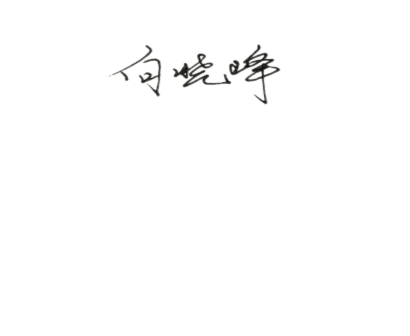 向晓峰